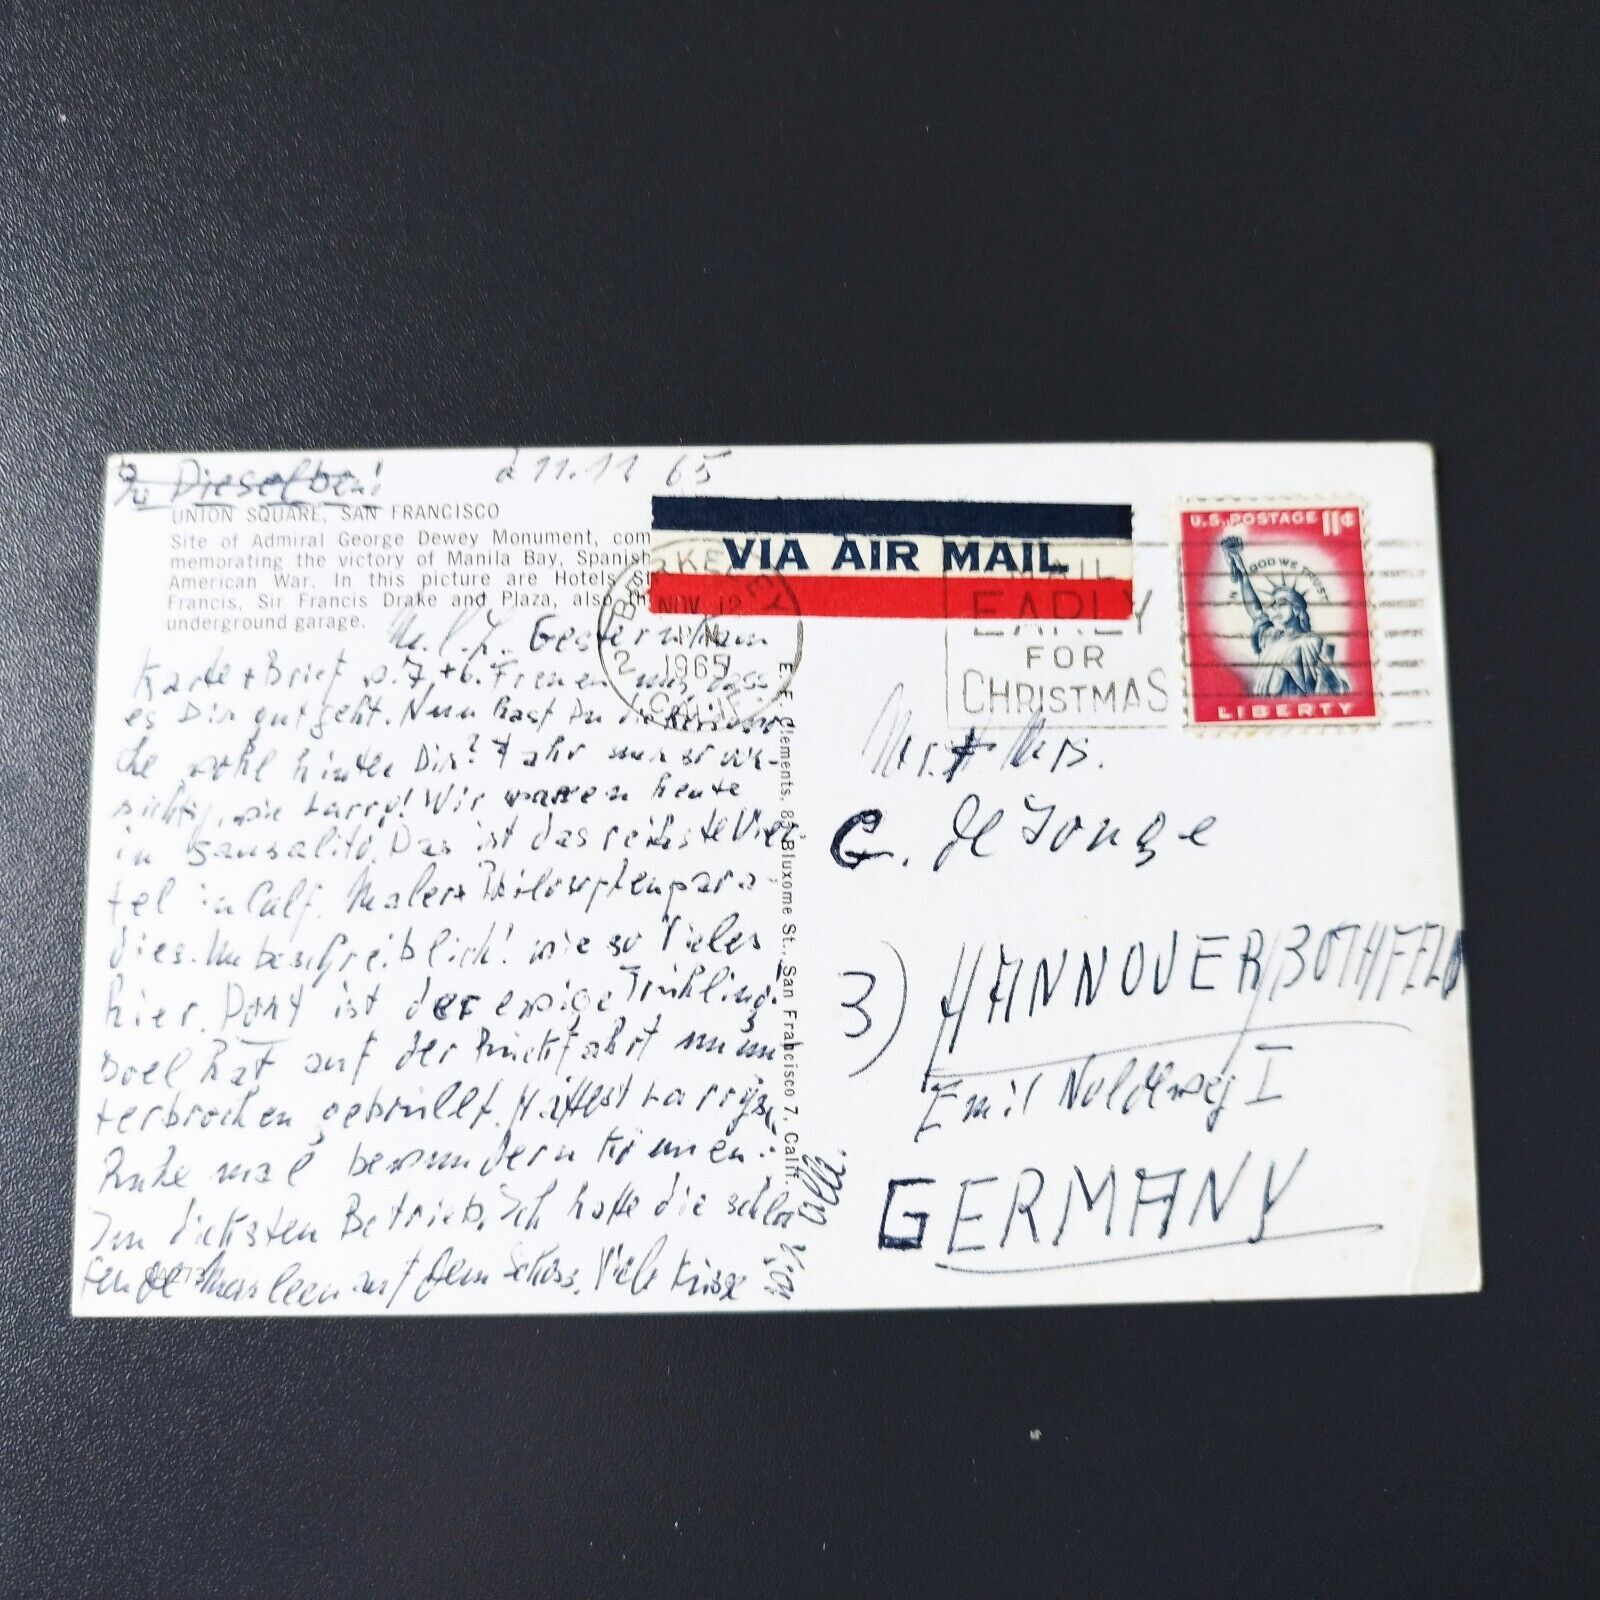 Dieselben!
d 11.11 65
UNION SQUARE, SAN FRANCISCO
Site of Admiral George Dewey Monument, com
memorating the victory of Manila Bay, Spanish
American War. In this picture are Hotels St
Francis, Sir Francis Drake and Plaza, also th
underground garage.
VIA AIR MAIL
BERKELEY
NOV 12
1965
CALIF
2
MAIL
EARLY
FOR
CHRISTMAS
U.S. POSTAGE 11¢
IN GOD WE TRUST
LIBERTY
M. l. L. Gestern kam
Karte + Brief v. 7 + 6. Freuen uns, dass
es Dir gut geht. Nun hast Du die
che wohl hinter Dir? Fahr nur so vor-
sichtig, wie Larry! Wir waren heute
in Sausalito. Das ist das reichste Vier-
tel in Calf. Maler + Philosophenpara-
dies. Unbeschreiblich! wie so Vieles
hier. Dort ist der ewige Frühling.
Joel hat auf der Rückfahrt nunun
terbrochen gebrüllt. Hättest Larrys
Ruhe mal bewundern können.
Im dicksten Betrieb. Ich hatte die schla
fende Marleen auf dem Schoss. Viele Küsse
E. F. Clements, 85 Bluxome St., San Francisco 7, Calif.
Mr. + Mrs.
C. de Jonge
3) HANNOVER/BOTHFELD
Emil Noldeweg I
GERMANY